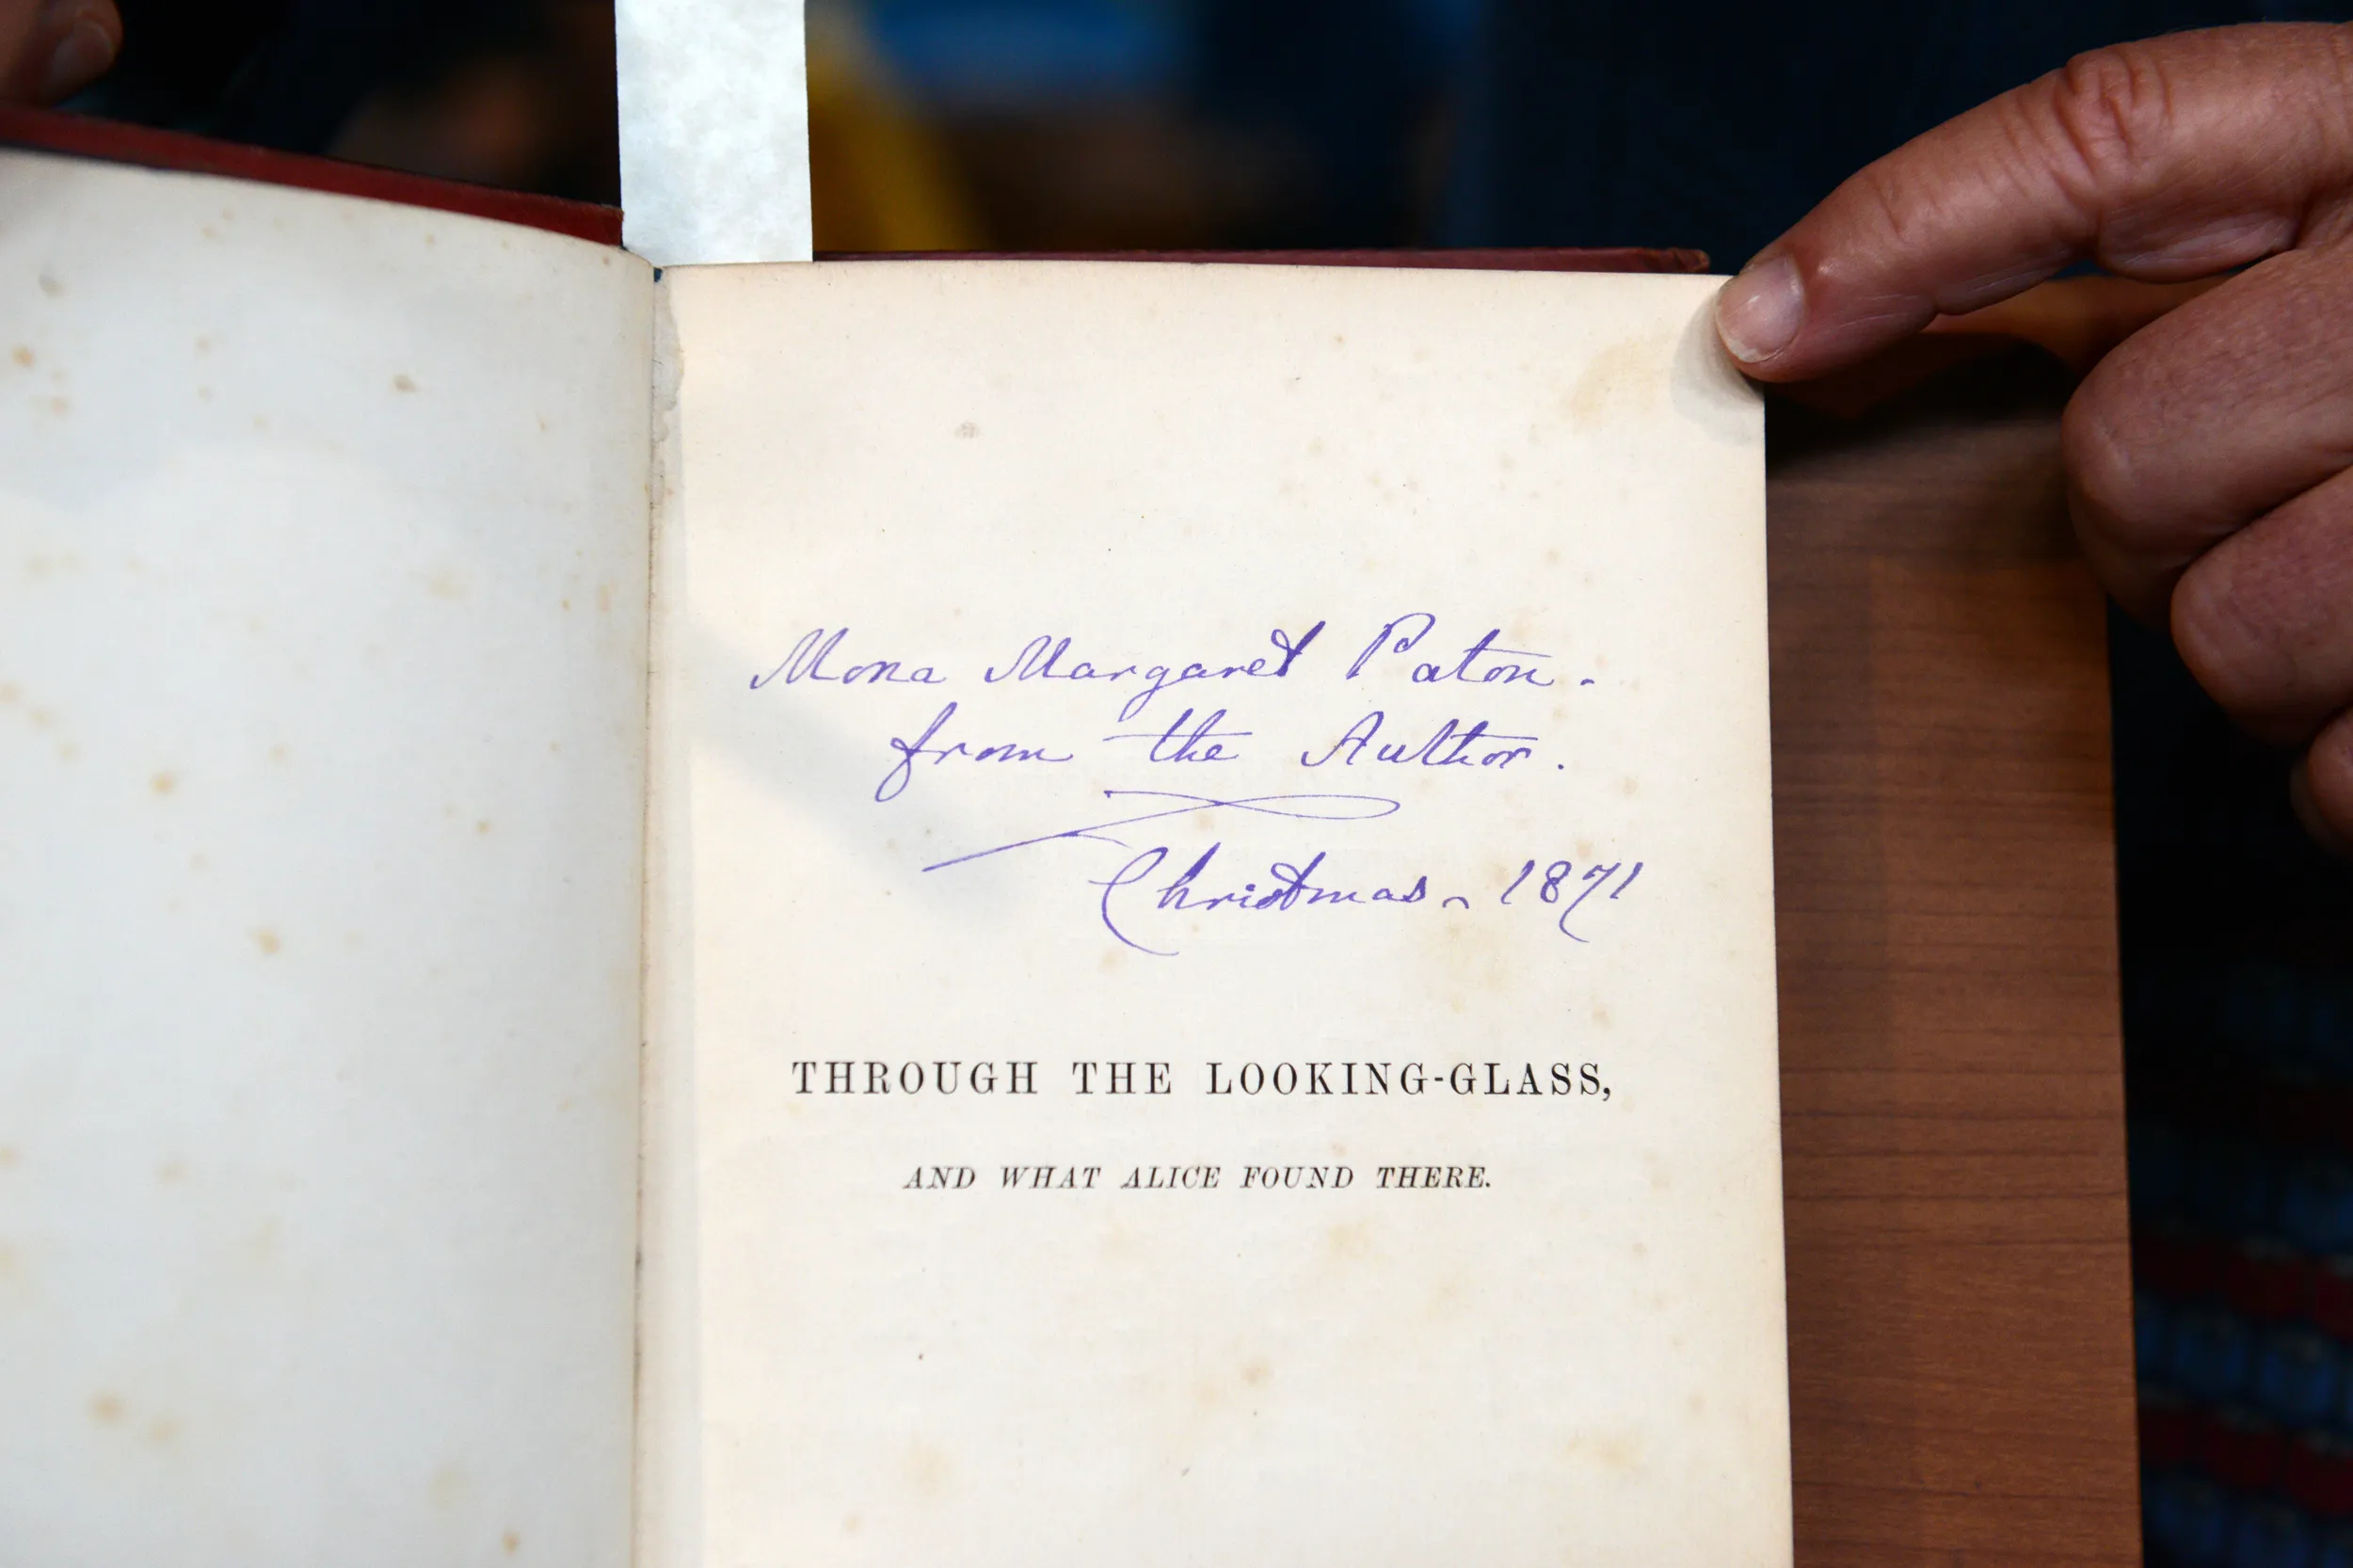 Mona Margaret Paton.
from the Author.
Christmas - 1871
THROUGH THE LOOKING-GLASS,
AND WHAT ALICE FOUND THERE.